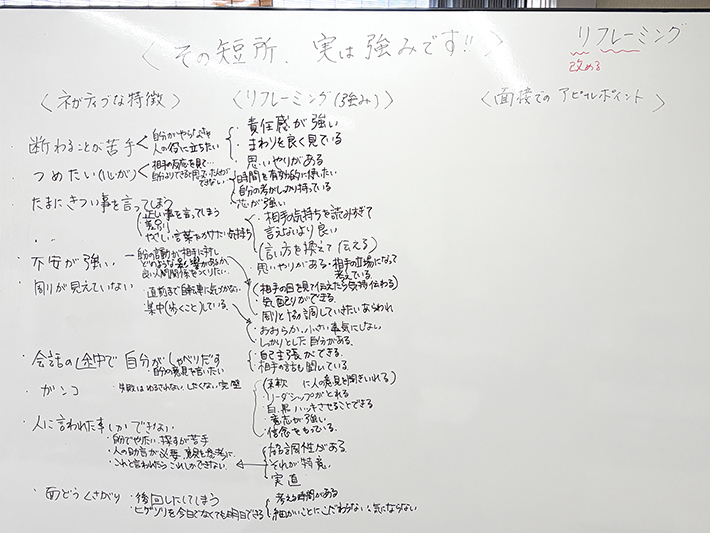 〈その短所、実は強みです!!〉
リフレーミング
改める
〈ネガティブな特徴〉
〈リフレーミング(強み)〉
〈面接でのアピールポイント〉
・断わることが苦手
自分がやらなきゃ
人の役に立ちたい
・責任感が強い
・まわりを良く見ている
・思いやりがある
・つめたい(心が)
相手の反応を見て…
できない
・時間を有効的に使いたい
・自分の考がしっかり持っている
・芯が強い
・たまにきつい事を言ってしまう
正しい事を言ってしまう
やさしい言葉をかけたい気持ち
・相手の気持ちを読みすぎて
言えないより良い
(言い方を換えて伝える)
・不安が強い
自分の言動が相手に対し
どのような影響があるか
良い人間関係をつくりたい
思いやりがある・相手の立場になって
考えている
・周りが見えていない
・直前まで自転車に気づかない
・集中(歩くこと)している
(相手の目を見て伝えたら気持伝わる)
・気配りができる
・周りと協調していきたいあらわれ
・おおらか、小さい事気にしない
・しっかりとした自分がある
・会話の途中で自分がしゃべりだす
・自分の意見を言いたい
・自己主張ができる
・相手の話も聞いている
・ガンコ
・失敗はゆるされない、したくない、完璧
(柔軟に人の意見を聞きいれる)
・リーダシップがとれる
・白、黒ハッキリさせることできる
・意志が強い
・信念をもっている
・人に言われた事しかできない
・自分でやりたい、探すが苦手
・人の助言が必要、意見を参考に
・これと言われたらこれしかできない
協調性がある
・それが特意
・実直
・面どうくさがり
・後回しにしてしまう
・ヒゲソリを今日でなくても明日できる
・考える時間がある
・細かいことにこだわらない、気にならない